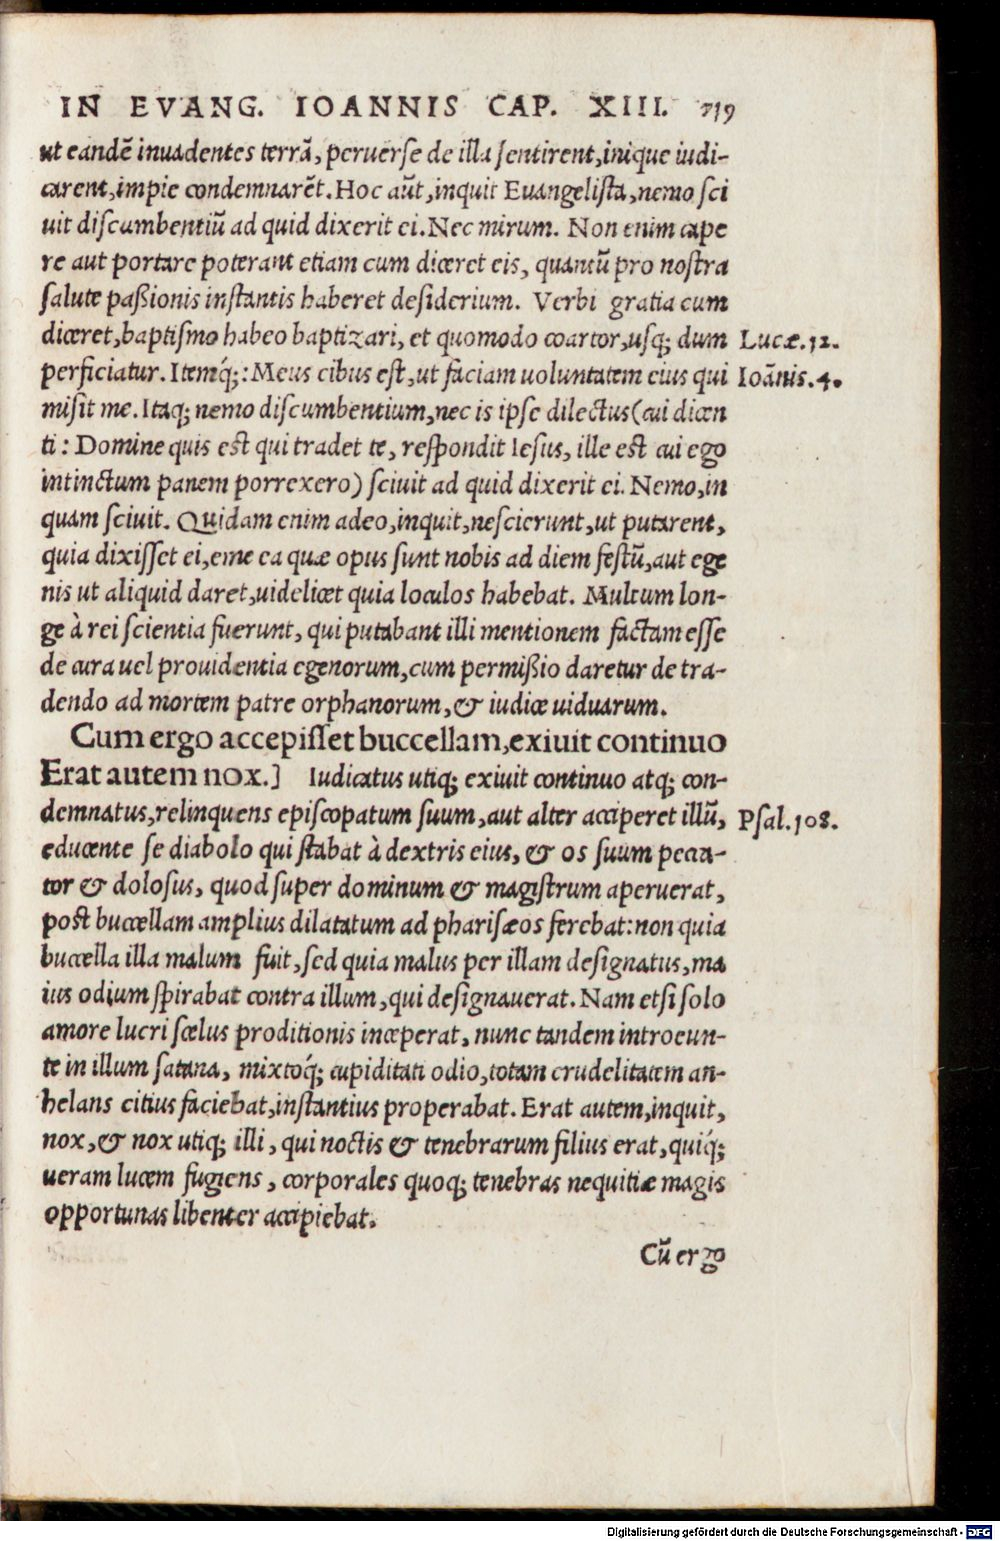 IN EVANG. IOANNIS CAP. XIII. 719
ut eandē inuadentes terrā, peruerse de illa sentirent, inique iudi-
carent, impie condemnarēt. Hoc aūt, inquit Euangelista, nemo sci
uit discumbentiū ad quid dixerit ei. Nec mirum. Non enim cape
re aut portare poterant etiam cum diceret eis, quantū pro nostra
salute paßionis instantis haberet desiderium. Verbi gratia cum
diceret, baptismo habeo baptizari, et quomodo coartor, usq; dum
Lucæ. 12.
perficiatur. Itemq́;: Meus cibus est, ut faciam uoluntatem eius qui
Ioānis. 4.
misit me. Itaq; nemo discumbentium, nec is ipse dilectus (cui dicen
ti: Domine quis est qui tradet te, respondit Iesus, ille est cui ego
intinctum panem porrexero) sciuit ad quid dixerit ei. Nemo, in
quam sciuit. Quidam enim adeo, inquit, nescierunt, ut putarent,
quia dixisset ei, eme ea quæ opus sunt nobis ad diem festū, aut ege
nis ut aliquid daret, uidelicet quia loculos habebat. Multum lon-
ge à rei scientia fuerunt, qui putabant illi mentionem factam esse
de cura uel prouidentia egenorum, cum permißio daretur de tra-
dendo ad mortem patre orphanorum, & iudice uiduarum.
Cum ergo accepisset buccellam, exiuit continuo
Erat autem nox.] Iudicatus utiq; exiuit continuo atq; con-
demnatus, relinquens episcopatum suum, aut alter acciperet illū,
Psal. 108.
educente se diabolo qui stabat à dextris eius, & os suum pecca-
tor & dolosus, quod super dominum & magistrum aperuerat,
post buccellam amplius dilatatum ad pharisæos ferebat: non quia
buccella illa malum fuit, sed quia malus per illam designatus, ma
ius odium spirabat contra illum, qui designauerat. Nam etsi solo
amore lucri scelus proditionis inceperat, nunc tandem introeun-
te in illum satana, mixtoq́; cupiditati odio, totam crudelitatem an-
helans citius faciebat, instantius properabat. Erat autem, inquit,
nox, & nox utiq; illi, qui noctis & tenebrarum filius erat, quiq́;
ueram lucem fugiens, corporales quoq; tenebras nequitiæ magis
opportunas libenter accipiebat.
Cū ergo
Digitalisierung gefördert durch die Deutsche Forschungsgemeinschaft - DFG